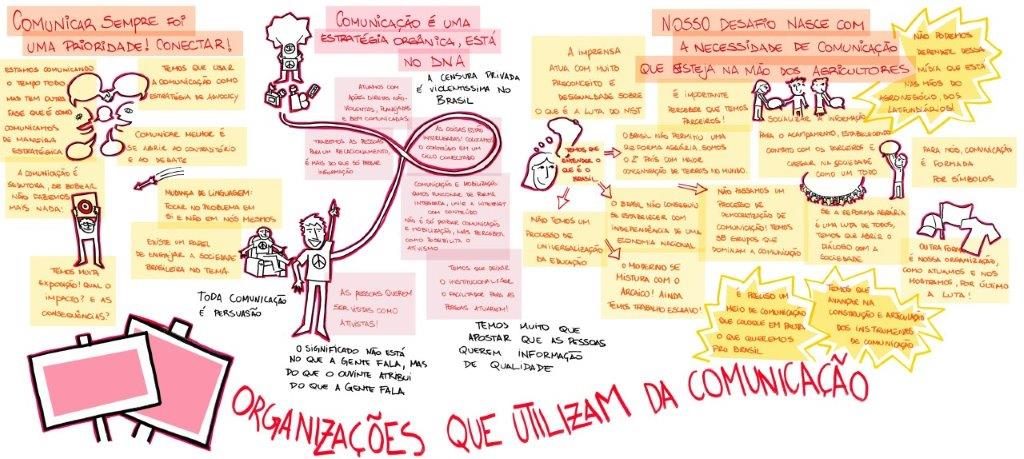 COMUNICAR SEMPRE FOI
UMA PRIORIDADE! CONECTAR!
ESTAMOS COMUNICANDO
O TEMPO TODO,
MAS TEM OUTRA
FASE QUE É COMO
COMUNICAMOS
DE MANEIRA
ESTRATÉGICA
TEMOS QUE USAR
A COMUNICAÇÃO COMO
ESTRATÉGIA DE ADVOCACY
COMUNICAR MELHOR É
SE ABRIR AO CONTRADITÓRIO
E AO DEBATE
A COMUNICAÇÃO É
SEDUTORA, DE BOBEAR
NÃO FAZEMOS
MAIS NADA!
MUDANÇA DE LINGUAGEM:
FOCAR NO PROBLEMA EM
SI E NÃO EM NÓS MESMOS
EXISTE UM PAPEL
DE ENGAJAR A SOCIEDADE
BRASILEIRA NO TEMA
TEMOS MUITA
EXPOSIÇÃO! QUAL O
IMPACTO? E AS
CONSEQUÊNCIAS?
TODA COMUNICAÇÃO
É PERSUASÃO
COMUNICAÇÃO É UMA
ESTRATÉGIA ORGÂNICA, ESTÁ
NO DNA
A CENSURA PRIVADA
É VIOLENTISSIMA NO
BRASIL
ATUAMOS COM
AÇÕES DIRETAS NÃO-
VIOLENTAS, PLANEJADAS
E BEM COMUNICADAS
TRAZEMOS AS PESSOAS
PARA UM RELACIONAMENTO,
É MAIS DO QUE SÓ PASSAR
INFORMAÇÃO
AS COISAS ESTÃO
INTERLIGADAS! COLOCAMOS
O CONTEÚDO EM UM
CICLO CONECTADO
COMUNICAÇÃO E MOBILIZAÇÃO
FUNCIONAR DE FORMA
INTEGRADA, UNIR A INTERNET
COM CONTEÚDO
NÃO É SÓ PENSAR COMUNICAÇÃO
E MOBILIZAÇÃO, MAS PERCEBER
COMO POSSIBILITA O
ATIVISMO
TEMOS QUE DEIXAR
O INSTITUCIONAL E SER
O FACILITADOR PARA AS
PESSOAS ATUAREM!
AS PESSOAS QUEREM
SER VISTAS COMO
ATIVISTAS!
O SIGNIFICADO NÃO ESTÁ
NO QUE A GENTE FALA, MAS
DO QUE O OUVINTE ATRIBUI
DO QUE A GENTE FALA
TEMOS MUITO QUE
APOSTAR QUE AS PESSOAS
QUEREM INFORMAÇÃO
DE QUALIDADE
NOSSO DESAFIO NASCE COM
A NECESSIDADE DE COMUNICAÇÃO
QUE ESTEJA NA MÃO DOS AGRICULTORES
NÃO PODEMOS
DEPENDER DESSA
MÍDIA QUE ESTÁ
NAS MÃOS DO
AGRONEGÓCIO E DOS
LATIFUNDIÁRIOS!
A IMPRENSA
ATUA COM MUITO
PRECONCEITO E
DESIGUALDADE SOBRE
O QUE É A LUTA DO MST
É IMPORTANTE
PERCEBER QUE TEMOS
PARCEIROS!
SOCIALIZAR A INFORMAÇÃO
PARA O ACAMPAMENTO, ESTABELECENDO
CONTATO COM OS PARCEIROS E
CHEGAR NA SOCIEDADE
COMO UM TODO
PARA NÓS, COMUNICAÇÃO
É FORMADA
POR SÍMBOLOS
TEMOS QUE
ENTENDER O
QUE É O
BRASIL
O BRASIL NÃO PERMITIU UMA
REFORMA AGRÁRIA. SOMOS
O 2º PAÍS COM MAIOR
CONCENTRAÇÃO DE TERRAS NO MUNDO
NÃO TEMOS UM
PROCESSO DE
UNIVERSALIZAÇÃO
DA EDUCAÇÃO
O BRASIL NÃO CONSEGUIU
SE ESTABELECER COM
INDEPENDÊNCIA DE UMA
ECONOMIA NACIONAL
O MODERNO SE
MISTURA COM O
ARCAICO! AINDA
TEMOS TRABALHO ESCRAVO!
NÃO PASSAMOS UM
PROCESSO DE
DEMOCRATIZAÇÃO DE
COMUNICAÇÃO! TEMOS
GRUPOS QUE
DOMINAM A COMUNICAÇÃO
SE A REFORMA AGRÁRIA
É UMA LUTA DE TODOS,
TEMOS QUE ABRIR O
DIÁLOGO COM A
SOCIEDADE
OUTRA FORMA
É NOSSA ORGANIZAÇÃO,
COMO ATUAMOS E NOS
MOSTRAMOS, POR ÚLTIMO
A LUTA!
É PRECISO UM
MEIO DE COMUNICAÇÃO
QUE COLOQUE EM PAUTA
O QUE QUEREMOS
PRO BRASIL
TEMOS QUE
AVANÇAR NA
CONSTRUÇÃO E ARTICULAÇÃO
DOS INSTRUMENTOS
DE COMUNICAÇÃO
ORGANIZAÇÕES QUE UTILIZAM DA COMUNICAÇÃO